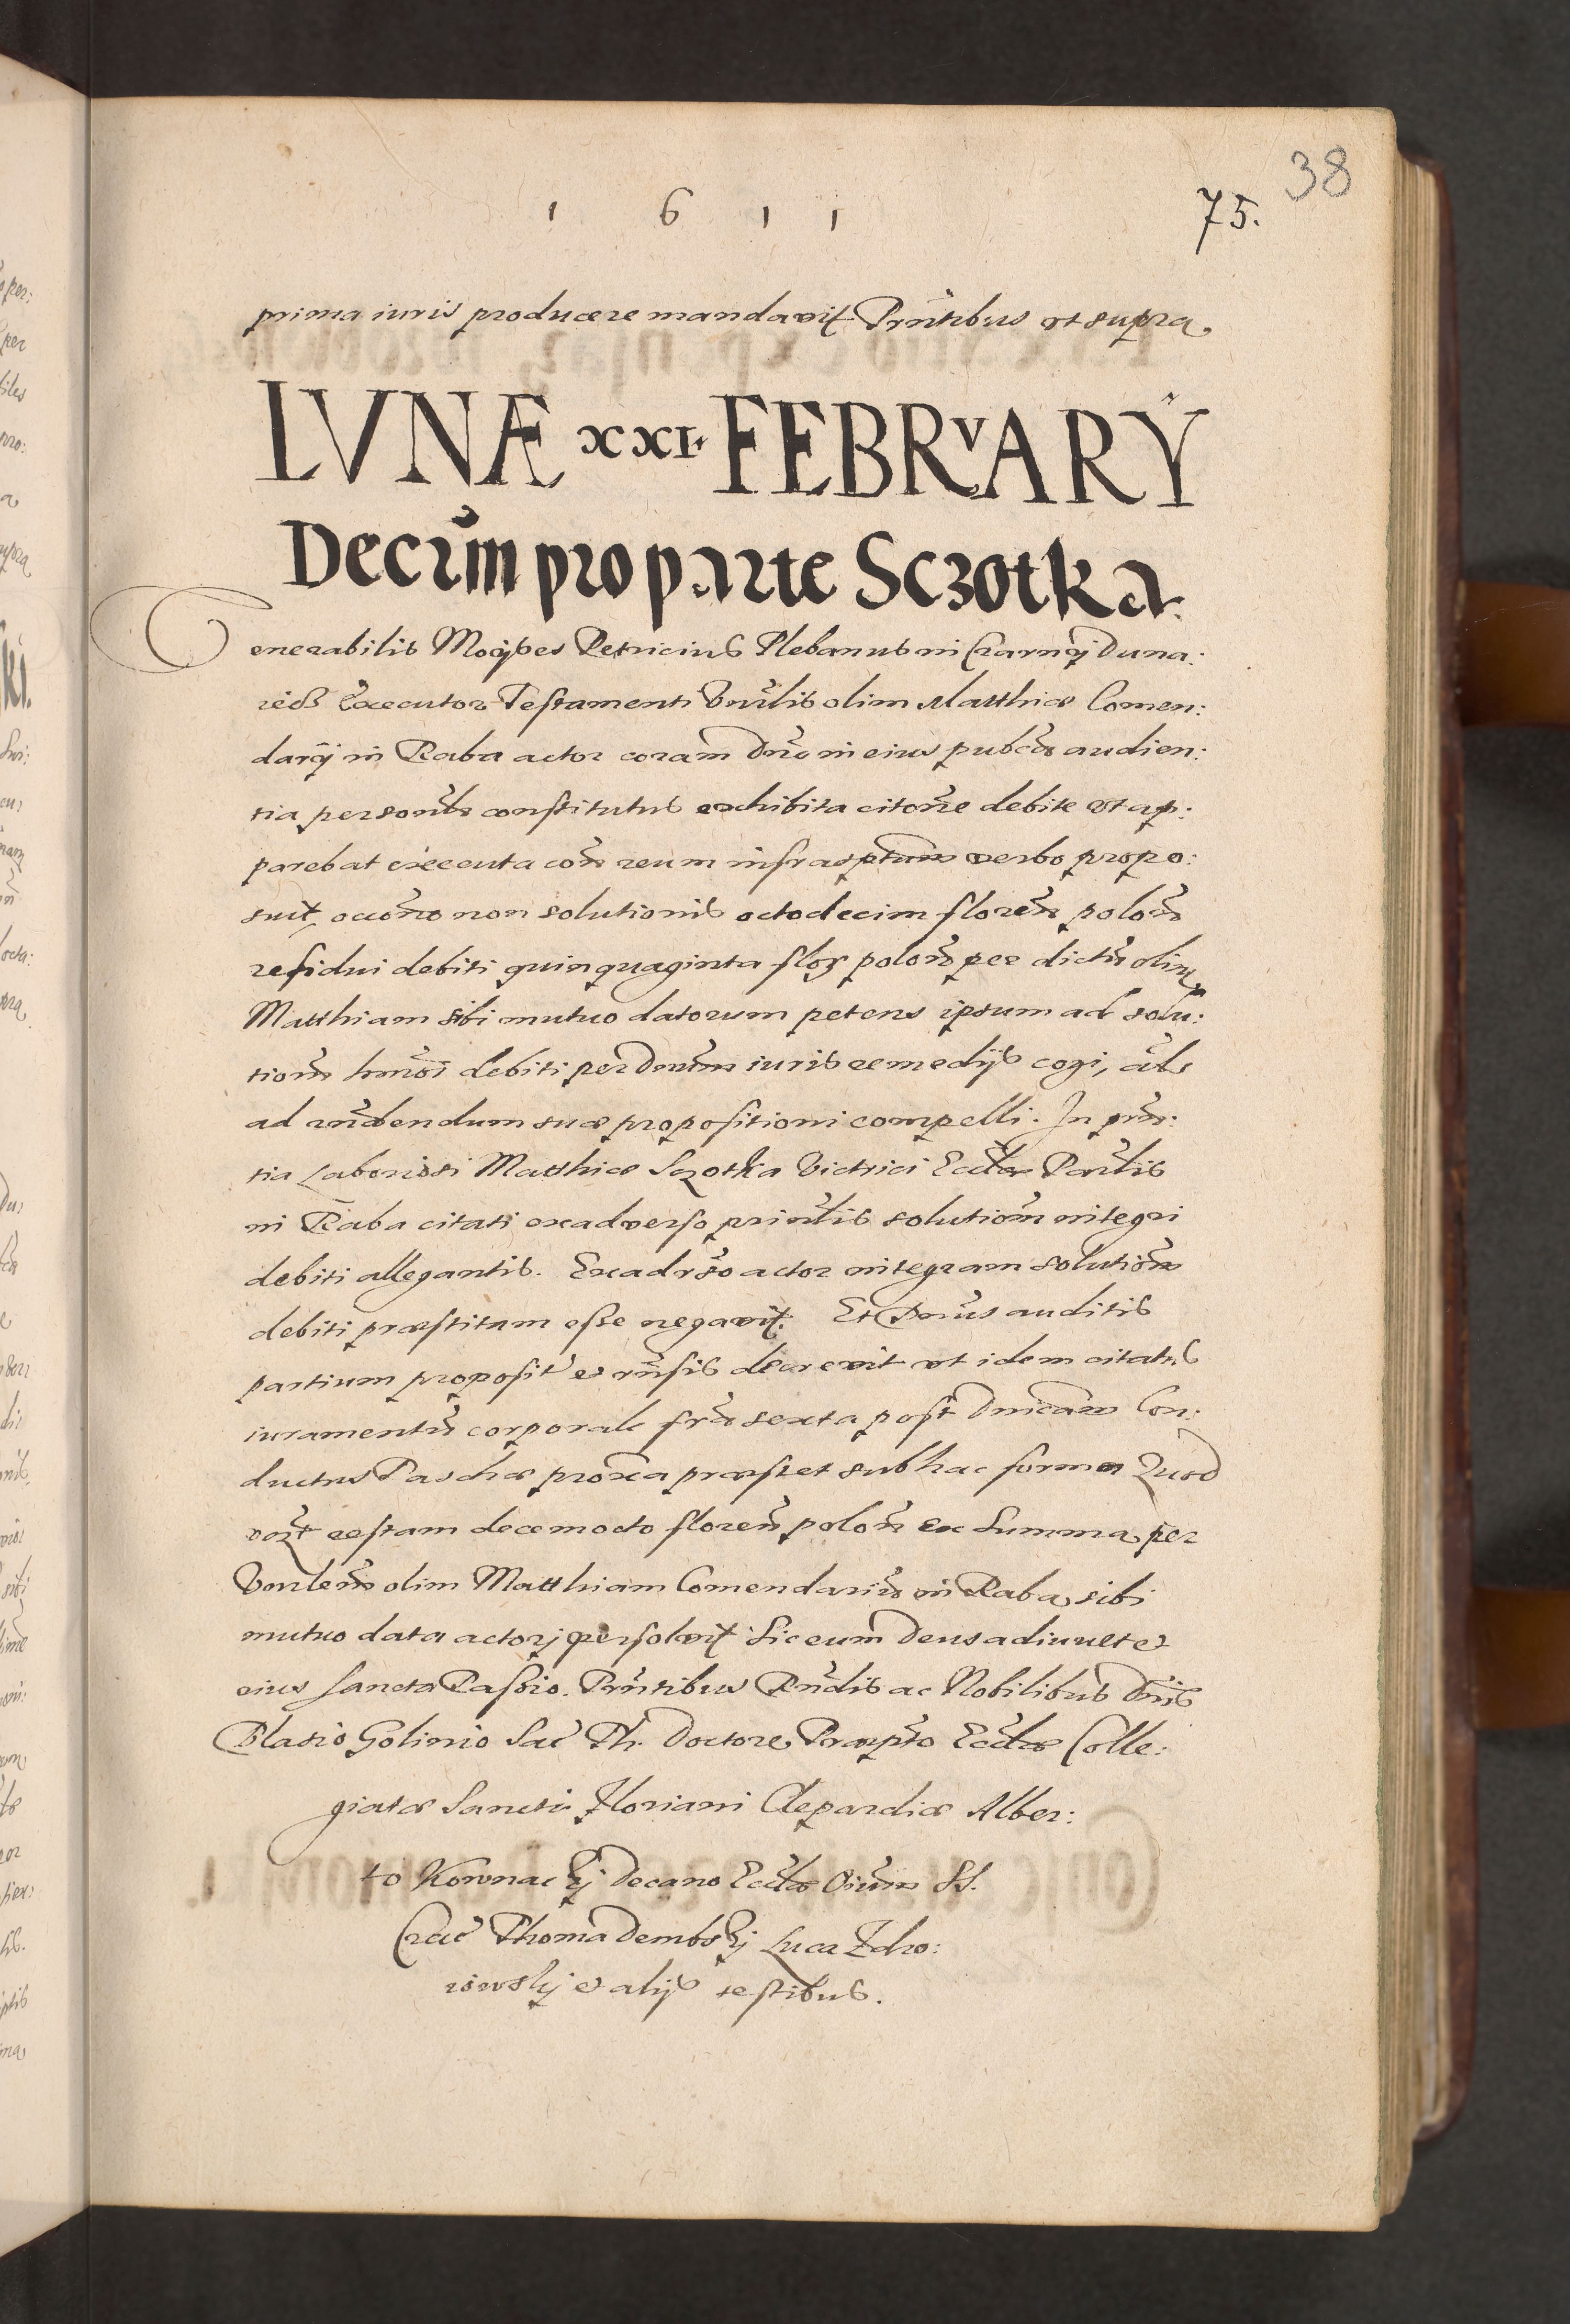 38
1 6 1 1
75.
prima iuris producere mandavit Prñtibus vt supra
LVNÆ XXI. FEBRVARY
Decrm̃ pro parte Sczotka
Venerabilis Moÿses Petricius Plebanus in Czarnÿ Duna:
iecz Executor Testamenti Vnrãlis olim Matthiæ Comen:
darÿ in Raba actor coram Dño in eius pubca audien:
tia personlr̃ constitutus exhibita citoñe debite vt ap:
parebat executa coñ reum infrascptum verbo propo:
suit, occoñe non solutionis octodecim floreñ poloñ
residui debiti quinquaginta flor poloñ per dictũ olim
Matthiam sibi mutuo datorum petens ipsum ad solu:
tioñ hmõi debiti per Dnum iuris remedijs cogi, als
ad rñdendum suæ propositioni compelli. In prñ:
tia Laboriosi Matthiæ Sczotka Victrici Ecclæ Parlis
in Raba citati exadverso prinlis solutiom integri
debiti allegantis. Exadrso actor integram solutioñ
debiti præstitam esse negavit. Et Dnus auditis
partium proposit et rñsis decrevit vt idem citatus
iuramentũ corporale fria sexta post Dnicam Con:
ductus Paschæ proxa præstet sub hac forma Quod
restam decemocto floreñ poloñ ex Summa per
Vnrlem olim Matthiam Comendariũ in Raba sibi
mutuo data actori persolvit Sic eum Deus adiuvet et
eius Sancta Passio. Prñtibus Rndis ac Nobilibus Dnis
Blasio Golinio Sac Th. Doctore Præpto Ecclæ Colle:
giatæ Sancti Floriani Clepardiæ Alber:
to Kownackÿ Decano Ecclæ Oium SS.
Crac Thoma Dembskÿ Luca Zdro:
iowskÿ et alijs testibus.